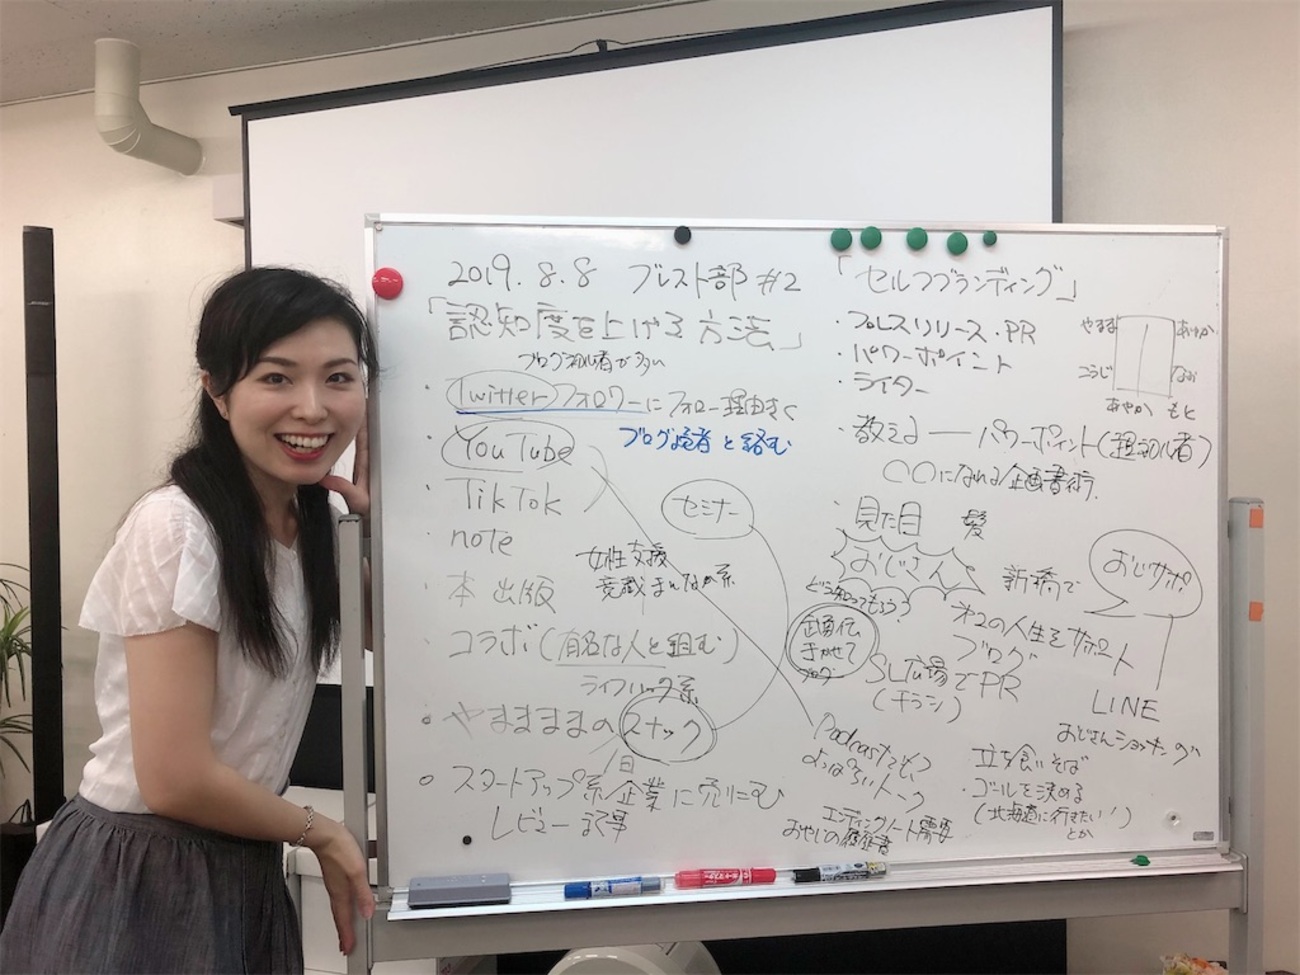 2019.8.8 ブレスト部 #2
「認知度を上げる方法」
ブログ初心者が多い
・Twitter フォロワーにフォロー理由きく
ブログ読者と絡む
・YouTube
・TikTok
・note
・本 出版
・コラボ(有名な人と組む)
ライフハック系
・やまままものスナック
1日
・スタートアップ系企業に売りこむ
レビュー記事
セミナー
女性支援
意識まんなか系
「セルフブランディング」
・プレスリリース・PR
・パワーポイント
・ライター
・教える ― パワーポイント(超初心者)
〇〇になれる企画書術
やるる
あやか
こうじ
なお
あやか
もと
・見た目 髪
おじさん
どう知ってもらう?
新橋で
おじサポ
オレの人生をサポート
ブログ
きかせて
ブログ
SL広場でPR
(チラシ)
LINE
おじさんショッピング
Podcastでも、
よっぱらいトーク
立ち食いそば
・ゴールを決める
(北海道に行きたい!
とか)
エンディングノート需要
おやじの履歴書